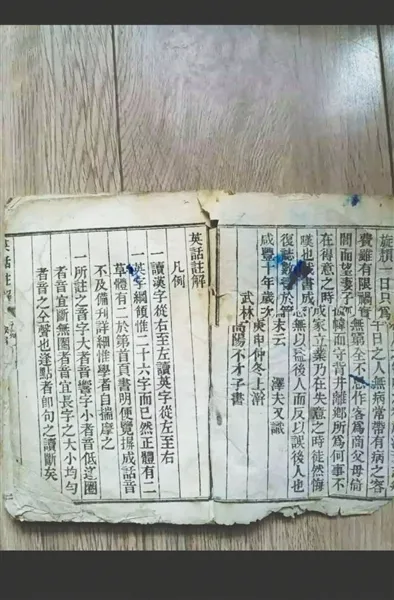 旋頹一日只為 日之人無病常帶有病之容
費雖有限禍實無 全不 作客為商父母倚
閭而望妻子 幃而守背井離鄉所為何事不
在得意之時 成家立業乃在失意之時徒然悔
嘆也 書成 無以 後人而反以誤後人也
復誌數 於 末云 澤夫又識
咸豐十年歲次庚申仲冬上澣
武林高陽不才子書
英話註解
凡例
一讀漢字從右至左讀英字從左至右
一英字綱領惟二十六字而已然正體有二
草體有二於第首頁書明便覽 成話音
不及備刊詳細惟學者自揣摩之
一所註之音字大者音響字小者音低逢圈
者音宜斷無圈者音宜長字之大小均勻
者音之仝聲也逢點者即句之讀斷矣
英話註解